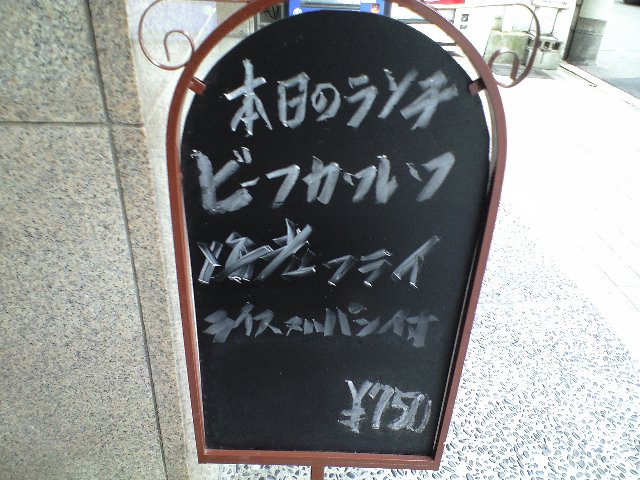 本日のランチ
ビーフカツレツ
海老フライ
ライス又ハパン付
¥750